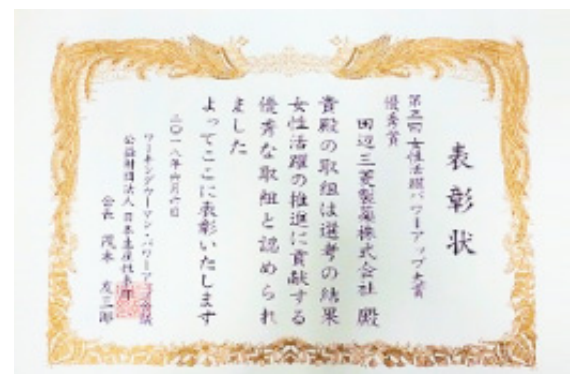 表彰状
第三回 女性活躍パワーアップ大賞
優秀賞
田辺三菱製薬株式会社 殿
貴殿の取組は選考の結果
女性活躍の推進に貢献する
優秀な取組と認められ
ました
よってここに表彰いたします
二〇一八年六月六日
ワーキングウーマン・パワーアップ会議
公益財団法人 日本生産性本部
会長 茂木 友三郎